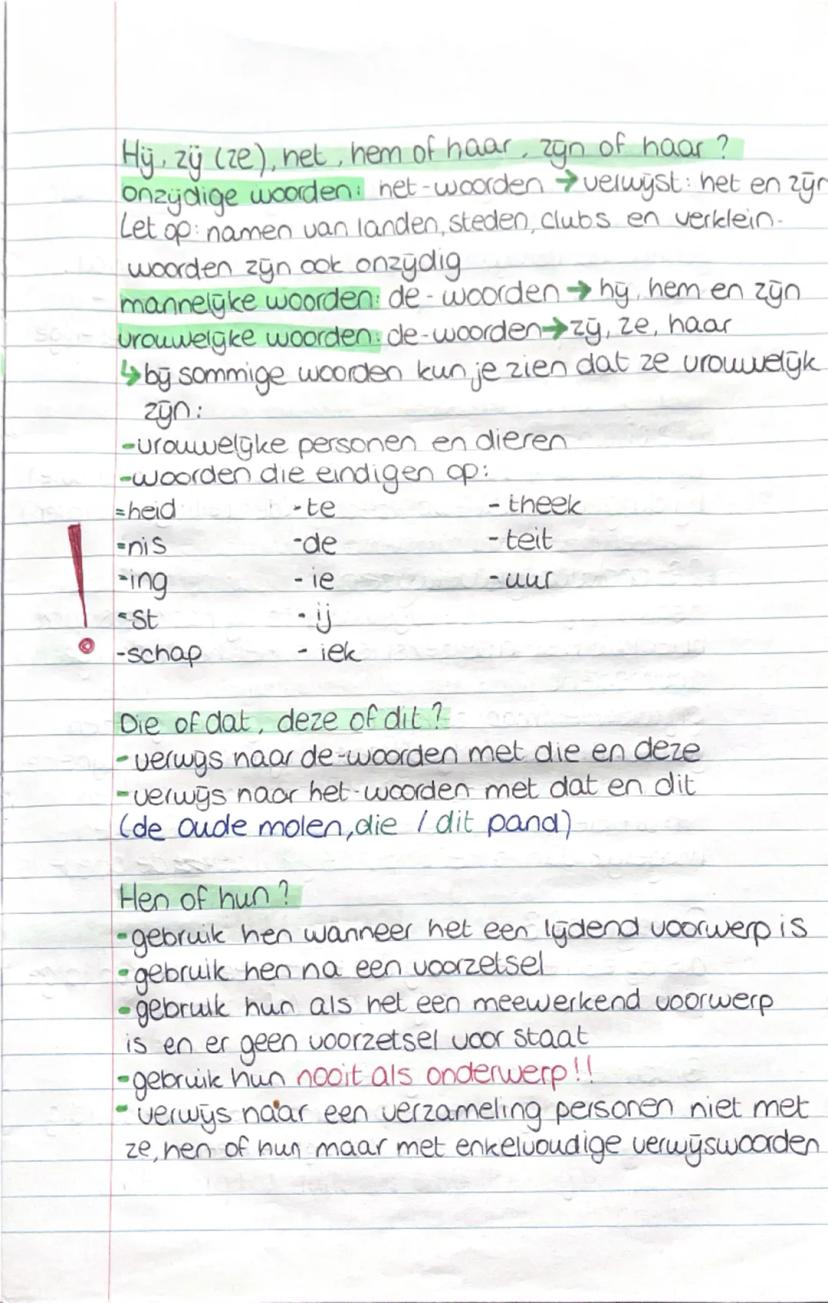 Hij, zij (ze), het, hem of haar, zijn of haar?
onzijdige woorden: het-woorden → verwijst: het en zijn
Let op: namen van landen, steden, clubs en verklein-
woorden zijn ook onzijdig
mannelijke woorden: de-woorden → hij, hem en zijn
vrouwelijke woorden: de-woorden → zij, ze, haar
↳ bij sommige woorden kun je zien dat ze vrouwelijk
zijn:
-vrouwelijke personen en dieren
-woorden die eindigen op:
-heid -te -theek
-nis -de -teit
! -ing -ie -uur
-st -ij
-schap -iek
Die of dat, deze of dit?
-verwijs naar de-woorden met die en deze
-verwijs naar het-woorden met dat en dit
(de oude molen, die / dit pand)
Hen of hun?
-gebruik hen wanneer het een lijdend voorwerp is
-gebruik hen na een voorzetsel
-gebruik hun als het een meewerkend voorwerp
is en er geen voorzetsel voor staat
-gebruik hun nooit als onderwerp!!
-verwijs naar een verzameling personen niet met
ze, hen of hun maar met enkelvoudige verwijswoorden